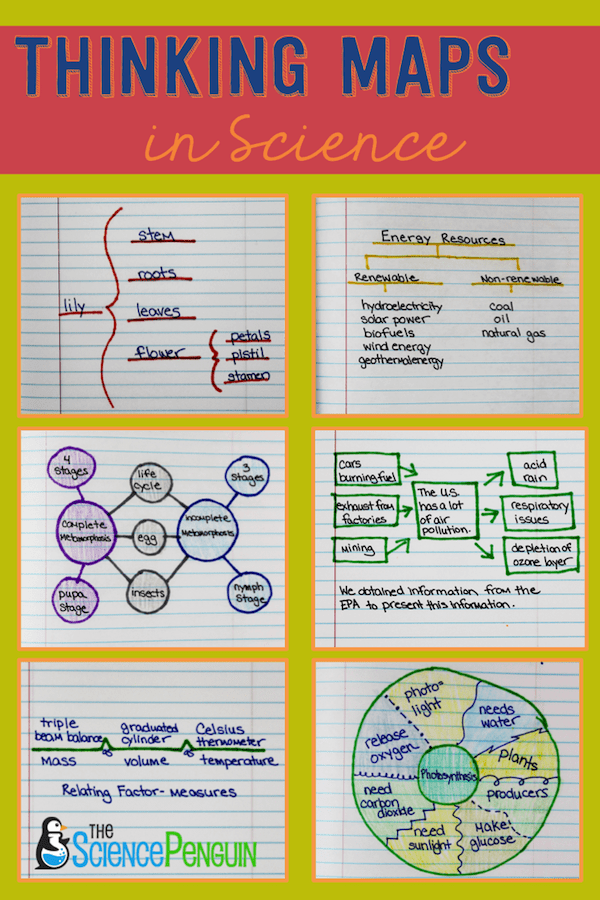 THINKING MAPS
in Science
lily
stem
roots
leaves
flower
petals
pistil
stamen
Energy Resources
Renewable
hydroelectricity
solar power
biofuels
wind energy
geothermal energy
Non-renewable
coal
oil
natural gas
4
stages
life
cycle
3
stages
complete
Metamorphosis
egg
incomplete
Metamorphosis
pupa
stage
insects
nymph
stage
cars
burning fuel
exhaust from
factories
mining
The U.S.
has a lot
of air
pollution.
acid
rain
respiratory
issues
depletion of
ozone layer
We obtained information from the
EPA to present this information.
triple
beam balance
graduated
cylinder
Celsius
thermometer
as
as
mass
volume
temperature
Relating Factor- measures
photo=
light
needs
water
release
oxygen
Photosynthesis
plants
producers
need
carbon
dioxide
need
sunlight
make
glucose
THE
SCIENCEPENGUIN